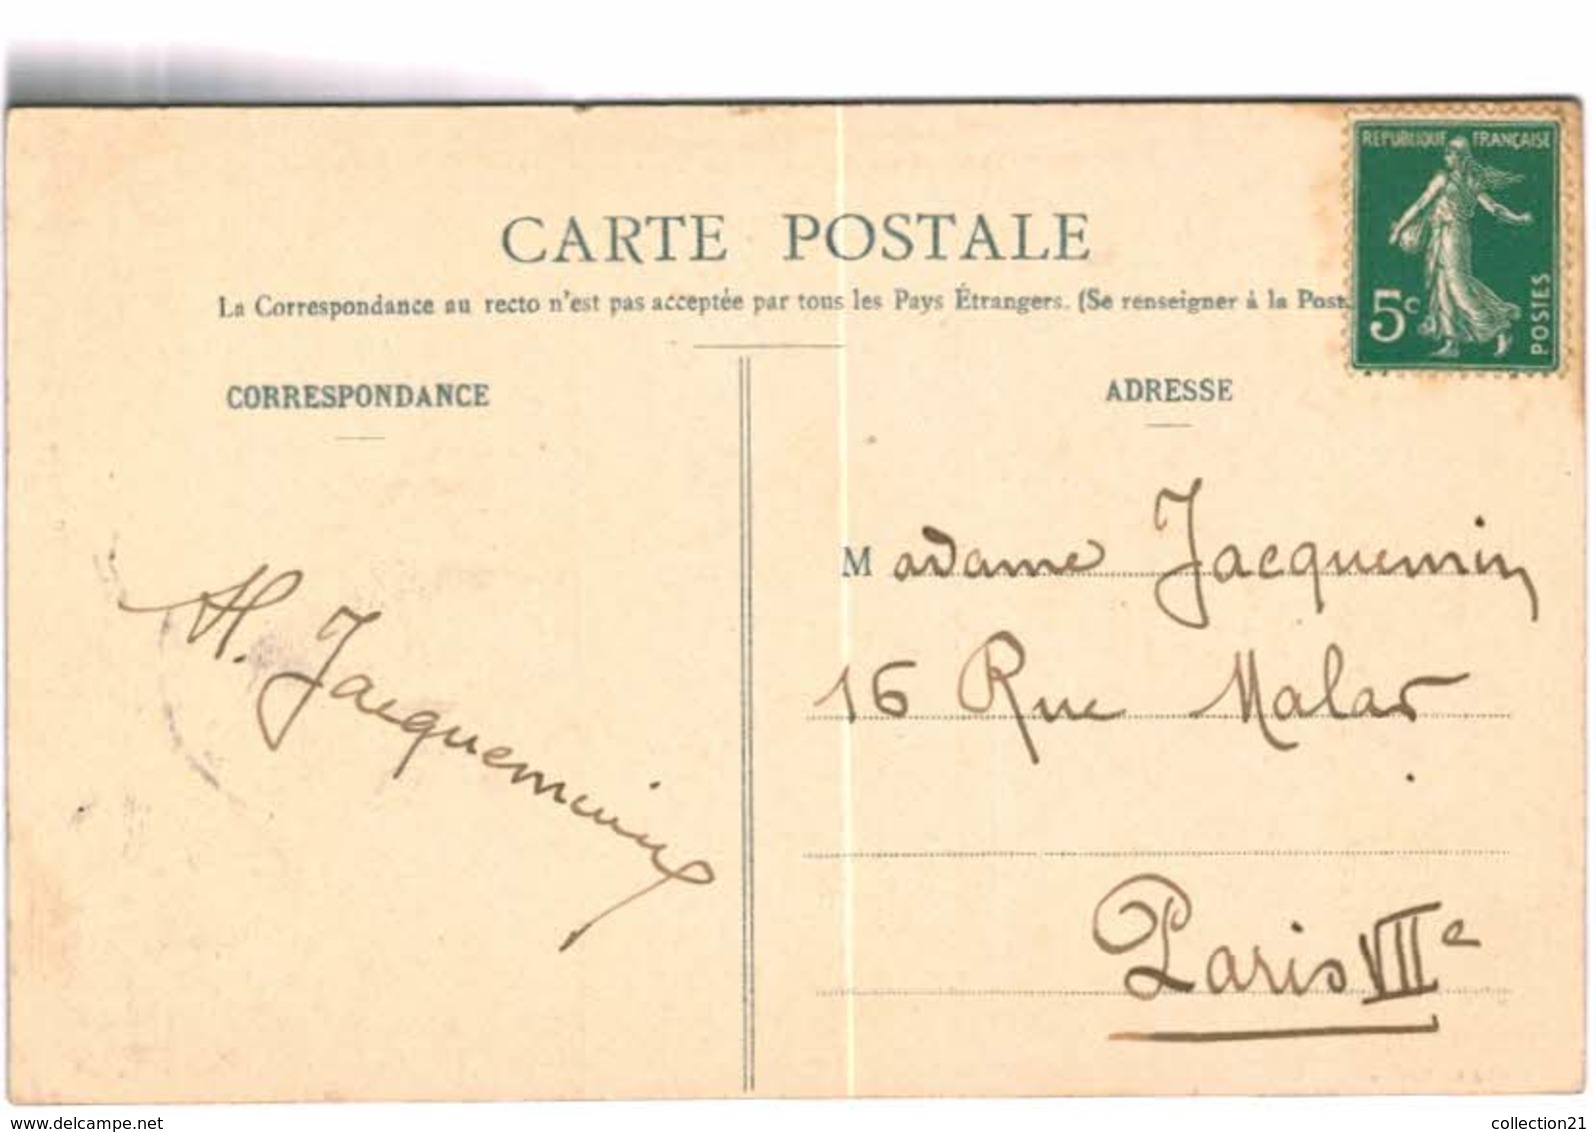 REPUBLIQUE FRANÇAISE
CARTE POSTALE
La Correspondance au recto n'est pas acceptée par tous les Pays Étrangers. (Se renseigner à la Post
5c
POSTES
CORRESPONDANCE
H. Jacquemin
ADRESSE
Madame Jacquemin
16 Rue Malar
Paris VIIe
www.delcampe.net
collection21